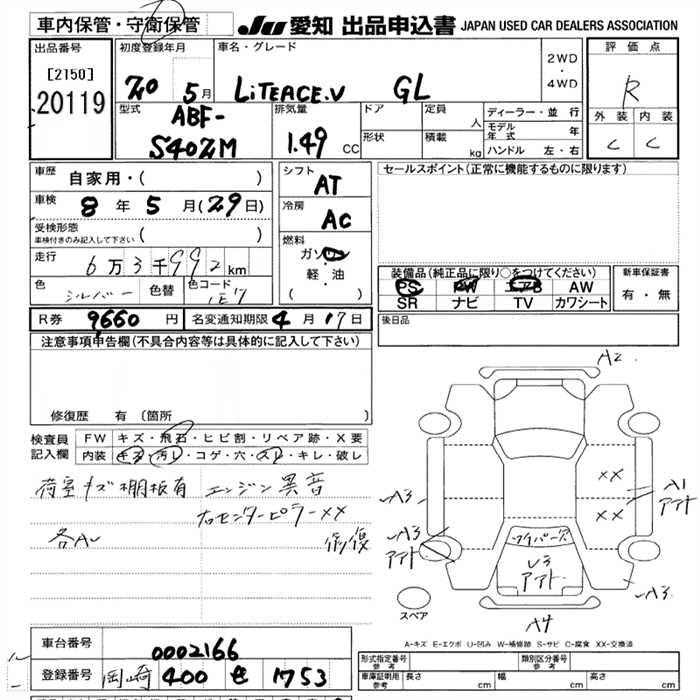 車内保管・守衛保管
JU 愛知 出品申込書 JAPAN USED CAR DEALERS ASSOCIATION
出品番号
[2150]
20119
初度登録年月
20 5月
車名・グレード
LiTEACE.V GL
2WD
・
4WD
評価点
R
外装 内装
C C
型式
ABF-
S402M
排気量
1.49 CC
ドア
形状
定員
人
積載
kg
ディーラー・並行
モデル年式 年
ハンドル 左・右
車歴
自家用・( )
車検
8年5月(29日)
受検形態
車検付きのみ記入して下さい ( )
走行
6万3千992km
色
シルバー
色替
色コード
1E7
シフト
AT
冷房
AC
燃料
ガソリン
軽・油
( )
セールスポイント(正常に機能するものに限ります)
装備品(純正品に限り○をつけてください)
PS PW エアB AW
SR ナビ TV カワシート
新車保証書
有・無
後日品
R券 9660円
名変通知期限 4月17日
注意事項申告欄(不具合内容等は具体的に記入して下さい)
修復歴 有(箇所 )
検査員記入欄
FW キズ・飛石・ヒビ割・リペア跡・X要
内装 キズ・汚レ・コゲ・穴・スレ・キレ・破レ
荷室キズ 棚板有 エンジン異音
右センターピラーXX
各A 修復
A2
XX
XX
A1
アアト
A3
A3
アアト
ワイパー欠
U3
アアト
A3
A4
スペア
A-キズ E-エクボ U-凹み W-補修跡 S-サビ C-腐食 XX-交換済
車台番号
0002166
登録番号
岡崎 400 せ 1753
形式指定番号
参考
類別区分番号
参考
車庫証明用
参考
長さ cm
幅 cm
高さ cm